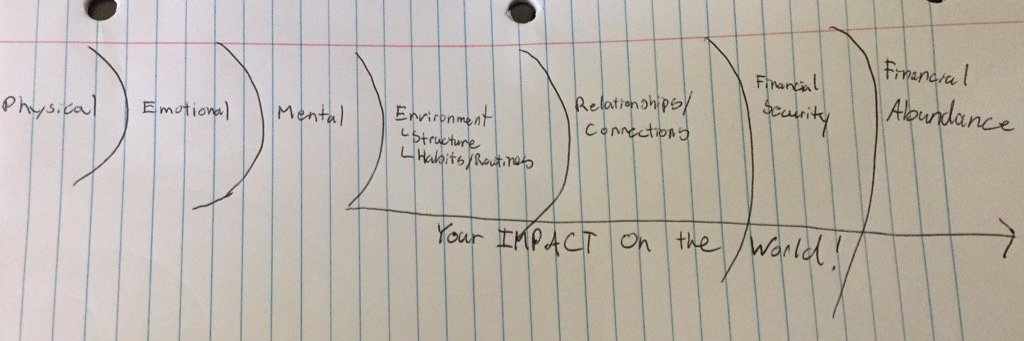 Physical
Emotional
Mental
Environment
Structure
Habits/Routines
Relationships/
Connections
Financial
Security
Financial
Abundance
Your IMPACT on the World!